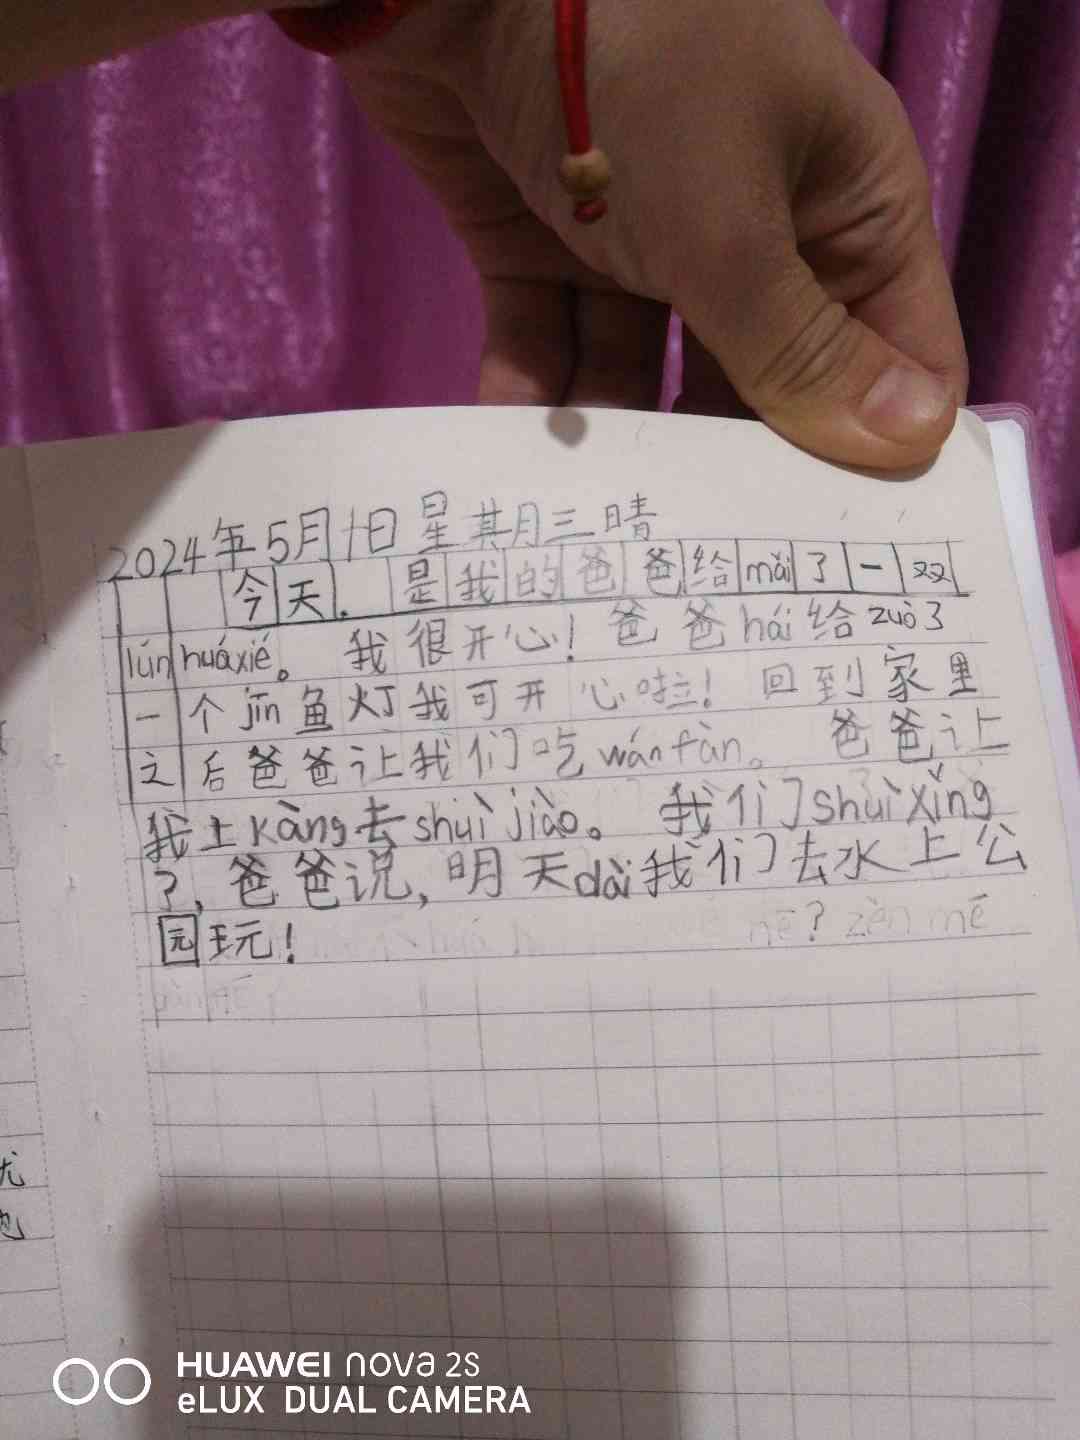 2024年5月1日星其月三晴
今天.是我的爸爸给mǎi了一双
lún huáxié。我很开心!爸爸hái给zuò了
一个jīn鱼灯我可开心啦!回到家里
之后爸爸让我们吃wǎnfàn。爸爸让
我上kàng去shuìjiào。我们shuìxǐng
了,爸爸说,明天dài我们去水上公
园玩!
nē?zěn mē
尤
也
HUAWEI nova 2s
eLUX DUAL CAMERA